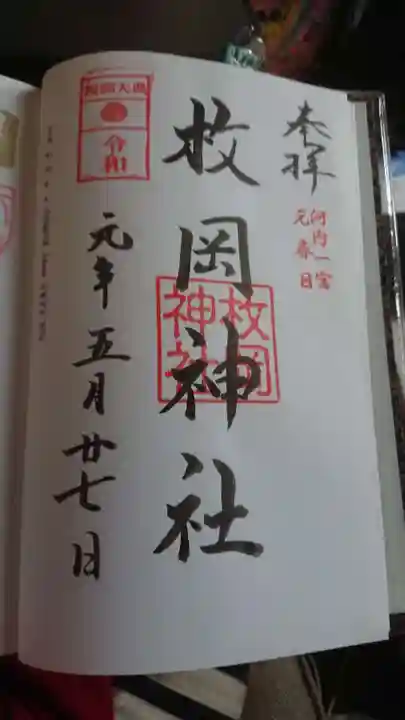 奉拝
河内一宮
元春日
枚岡神社
枚岡神社
令和
元年五月廿七日